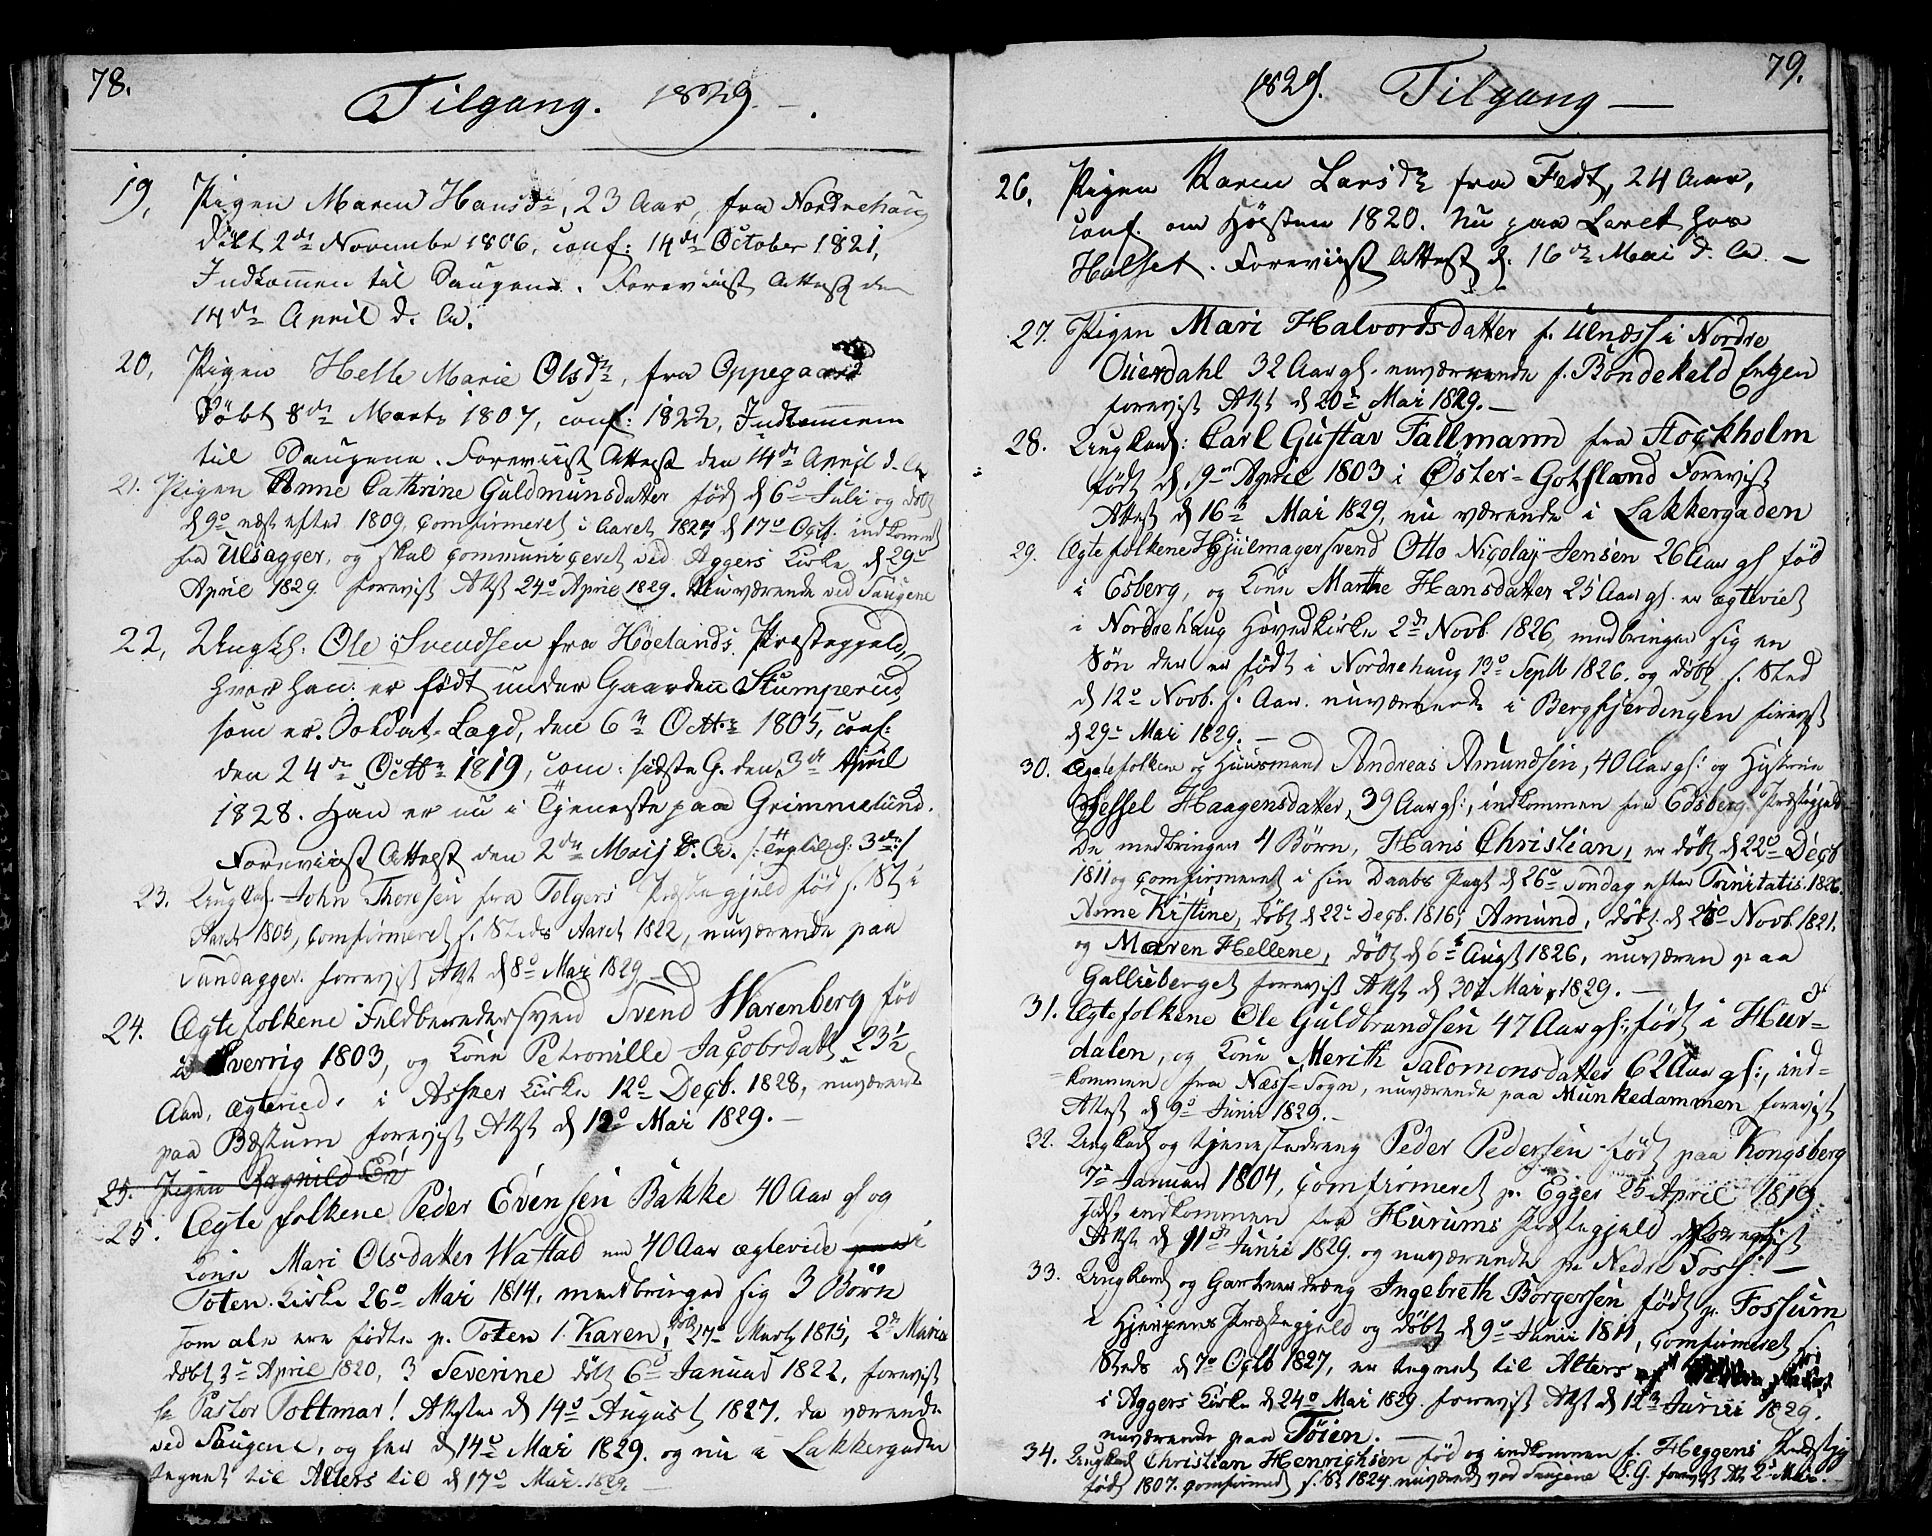 78.
Tilgang. 1829.
19, Pigen Maren Hansdr, 23 Aar, fra Nordrehaug
döbt 2de Novembr 1806, conf: 14de October 1821,
Indkommen til Saugene. Foreviist Attest den
14de April d. A.
20, Pigen Helle Marie Olsdr, fra Oppegaard
Döbt 8de Marts 1807, conf: 1822, Indkommen
til Saugene. Foreviist Attest den 14de April d. A.
21. Pigen Anne Cathrine Guldmunsdatter föd d 6te Juli og döbt
d 9de næst efter 1809, Comfirmeret i Aaret 1827 d 17de Octb. indkommet
fra Ulsagger, og skal communiceret ved Aggers Kirke d 29de
April 1829 forevist Atst 24de April 1829. Nuværende ved Saugene
22, Ungk: Ole Svendsen fra Hölands Præstegjeld,
hvor han er födt under Gaarden Stumperud,
som er Soldat-Lægd, den 6te Octbr 1805, conf:
den 24de Octbr 1819, com: sidste G. den 3de April
1828. Han er nu i Tjeneste paa Grimmelund.
Foreviist Attest den 2den Maij d. A.
23. Ungkarl John Thoresen fra Tolgers Præstegjeld föd s. St i
Aaret 1805, Comfirmeret s. Steds Aaret 1822, nuværende paa
Sandagger. forevist Atst d 8de Mai 1829.
24. Ægtefolkene Feldberedersvend Svend Warenberg föd
i Sverrig 1803, og Kone Petronille Jacobsdatt 23½
Aar, ægteviede i Assker Kirke 12te Decb. 1828, nuværende
paa Bæstum forevist Atst d 12te Mai 1829.
25. Pigen Ragnild En
25. Ægtefolkene Peder Evensen Bakke 40 Aar gl og
Kone Mari Olsdatter Wastad 40 Aar ægteviede paa i
Toten Kirke 26de Mai 1814, medbringer sig 3 Börn
som ale ere födte p. Toten 1. Karen, döbt 27de Marts 1815, 2de Maria
döbt 3de April 1820, 3 Severine döbt 6te Januar 1822, forevist
fr Pastor Toltmar! Attester d 14de August 1827. da værende
ved Saugene, og her d 14de Mai 1829. og nu i Lakkergaden
tegnet til Alters til d 17de Mai 1829.
1829. Tilgang
79.
26. Pigen Karen Larsdr fra Fedt, 24 Aar,
conf. om Hösten 1820. Nu paa Lövet hos
Holset. Foreviist Attest d. 16de Mai d. A.
27. Pigen Mari Halvordsdatter f. Ulnæss i Nordre
Ouerdahl 32 Aar gl. nuværende p. Böndekald Engen
forevist Atst d 20de Mai 1829.
28. Ungkarl: Carl Gustav Fallmann fra Stockholm
födt d. 9de April 1803 i Öster-Gotfland Forevist
Attest d 16de Mai 1829, nu værende i Lakkergaden
29. Ægtefolkene Hjulmagersvend Otto Nicolaÿ Jensen 26 Aar gl föd
i Esberg, og Kone Marthe Hansdatter 25 Aar gl. er ægteviet
i Nordrehaug Hovedkirke 2de Novb. 1826, medbringer sig en
Sön der er födt i Nordrehaug 13de Septb 1826. og döbt s. Sted
d 12te Novb. s. Aar. nuværende i Bergfjerdingen forevist
d 29de Mai 1829.
30. Ægtefolkene og Huusmand Andreas Amundsen, 40 Aar gl: og Hustrue
Sessel Haagensdatter, 39 Aar gl:, indkommen fra Edsberg Præstegjeld
De medbringer 4 Börn, Hans Christian, er döbt d 22de Decb
1811 og comfirmeret i sin Daabs Pagt d 26de Söndag efter Trinitatis. 1826
Anne Kistine, döbt d 22de Decb. 1816, Amund, döbt d 25de Novb. 1821.
og Maren Hellene, döbt d 6te Augst 1826, nuværen paa
Gallieberget forevist Atst d 30te Mai, 1829.
31. Ægtefolkene Ole Guldbrandsen 47 Aar gl:, födt i Hur-
dalen, og Kone Merith Salomonsdatter 62 Aar gl:, ind-
kommen fra Næss-Sogn, nuværende paa Munkedammen forevist
Attest d 9de Junii 1829.
32. Ungkarl og tjenestedreng Peder Pedersen födt paa Kongsberg
7de Januar 1804, Comfirmeret p. Egger 25 April 1819
indkommen fra Hurums Præstegjeld Forevist
Atst d 11te Junii 1829. og nuværende p. Nedre Foss.
33. Ungkarl og Gartnerdreng Ingebreth Börgersen födt p. Fossum
i Hjerpens Præstegjeld og döbt d 9de Junii 1811, Comfirmeret s.
Steds d 7de Octb 1827, er tegnet til Alters
i Aggers Kirke d 24de Mai 1829. forevist Atst d 12te Junii 1829.
nuværende paa Töien.
34. Ungkarl Christian Henrichsen föd og indkommen f. Heggens Præstegj
föd 1807. Comfirmered s. St 1824 nuværende ved Saugene forevist At 2de Mai